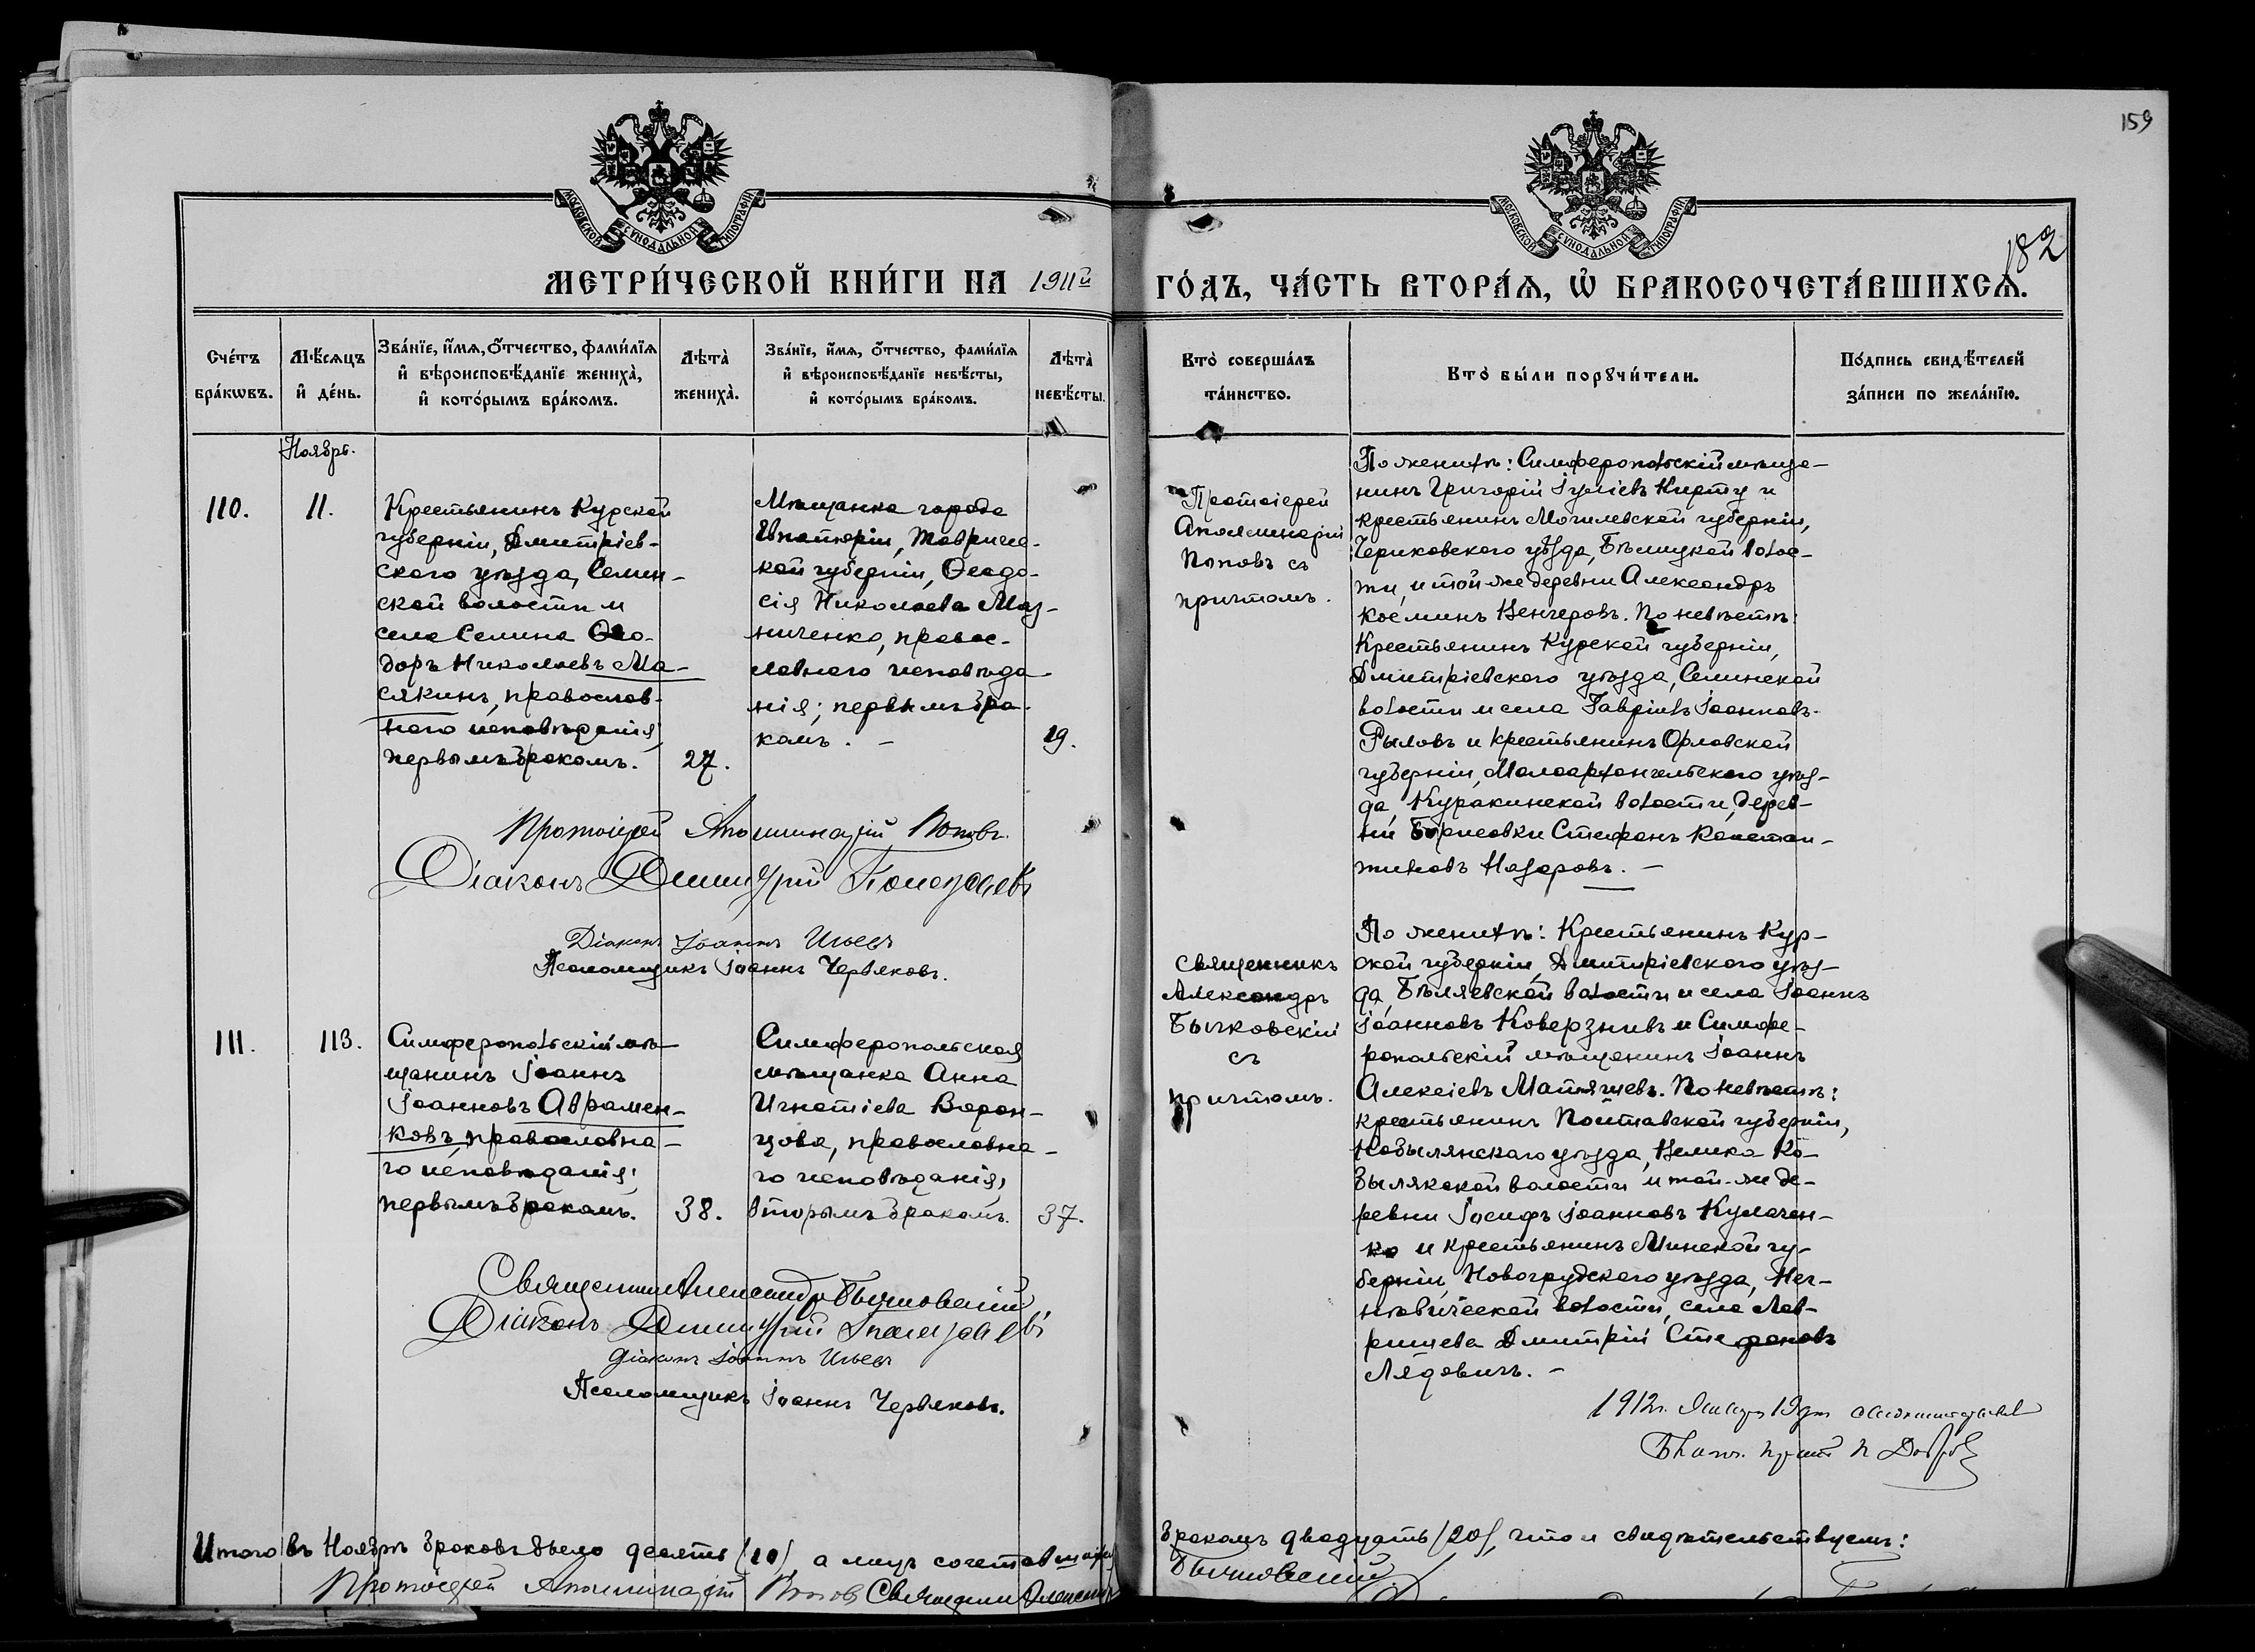 159
182
МОСКОВСКОЙ СѴНОДАЛЬНОЙ ТИПОГРАФІИ
МОСКОВСКОЙ СѴНОДАЛЬНОЙ ТИПОГРАФІИ
МЕТРИ́ЧЕСКОЙ КНИ́ГИ НА 1911й ГО́ДЪ, ЧА́СТЬ ВТОРА́Ѧ, Ѡ҆ БРАКОСОЧЕТА́ВШИХСѦ.
Сче́тъ
бра́кѡвъ.
Мѣ́сѧцъ
и҆ де́нь.
Зва́нїе, и҆́мѧ, ѻ҆́тчество, фами́лїѧ
и҆ вѣроисповѣ́данїе жениха̀,
и҆ кото́рымъ бра́комъ.
Лѣта̀
жениха̀.
Зва́нїе, и҆́мѧ, ѻ҆́тчество, фами́лїѧ
и҆ вѣроисповѣ́данїе невѣ́сты,
и҆ кото́рымъ бра́комъ.
Лѣта̀
невѣ́сты.
Кто̀ соверша́лъ
та́инство.
Кто̀ бы́ли порꙋчи́тели.
По́дпись свидѣ́телей
за́писи по жела́нїю.
Ноябрь.
110.
11.
Крестьянинъ Курской
губерніи, Дмитріев-
ского уѣзда, Семин-
ской волости и
села Семина Ѳео-
доръ Николаевъ Ма-
сякинъ, православ-
ного исповѣданія,
первымъ бракомъ.
27.
Мѣщанка города
Евпаторіи, Тавричес-
кой губерніи, Ѳеодо-
сія Николаева Маз-
ниченко, правос-
лавного исповѣда-
нія; первымъ бра-
комъ. –
19.
Протоіерей
Аполлинарій
Поповъ съ
причтомъ.
По женихѣ: Симферопольскій мѣща-
нинъ Григорій Іуліевъ Кирту и
крестьянинъ Могилевской губерніи,
Чериковского уѣзда, Бѣлицкой волос-
ти, и той же деревни Александръ
Косминъ Венчеровъ. По невѣстѣ:
Крестьянинъ Курской губерніи,
Дмитріевского уѣзда, Семинской
волости и села Гавріилъ Іоанновъ
Рыловъ и крестьянинъ Орловской
губерніи, Малоархангельского уѣз-
да, Куракинской волости, дерев-
ни Борисовки Стефанъ Констан-
тиновъ Назаровъ. –
Протоіерей Аполлинарій Поповъ.
Діаконъ Димитрій
Діаконъ Іоаннъ Ильевъ
Псаломщикъ Іоаннъ Червяковъ.
111.
113.
Симферопольскій мѣ-
щанинъ Іоаннъ
Іоанновъ Аврамен-
ковъ, православна-
го исповѣданія;
первымъ бракомъ.
38.
Симферопольская
мѣщанка Анна
Игнатіева Ворон-
цова, православна-
го исповѣданія,
вторымъ бракомъ.
37.
Священникъ
Александръ
Бычковскій
съ
причтомъ.
По женихѣ: Крестьянинъ Кур-
ской губерніи, Дмитріевского уѣз-
да, Бѣляевской волости и села Іоаннъ
Іоанновъ Коверзнивъ и Симфе-
ропольскій мѣщанинъ Іоаннъ
Алексіевъ Матячевъ. По невѣстѣ:
крестьянинъ Полтавской губерніи,
Кобылянскаго уѣзда, Велико Ко-
былякской волости и той-же де-
ревни Іосифъ Іоанновъ Кулачен-
ко и крестьянинъ Минской гу-
берніи, Новогрудского уѣзда, Нег-
нѣвической волости, села Лав-
ришева Дмитрій Стефановъ
Лядовичъ. –
Священникъ Александръ Бычковскій
Діаконъ Димитрій
Діаконъ Іоаннъ Ильевъ
Псаломщикъ Іоаннъ Червяковъ.
1912г. Января 19 дня свидѣтельствовалъ
Благоч. прот. П Добровъ
Итого въ Ноябрѣ браковъ было десять (10), а лицъ сочетавшихся бракомъ двадцать (20), что и свидѣтельствуемъ:
Протоіерей Аполлинарій Поповъ Священникъ Александръ Бычковскій